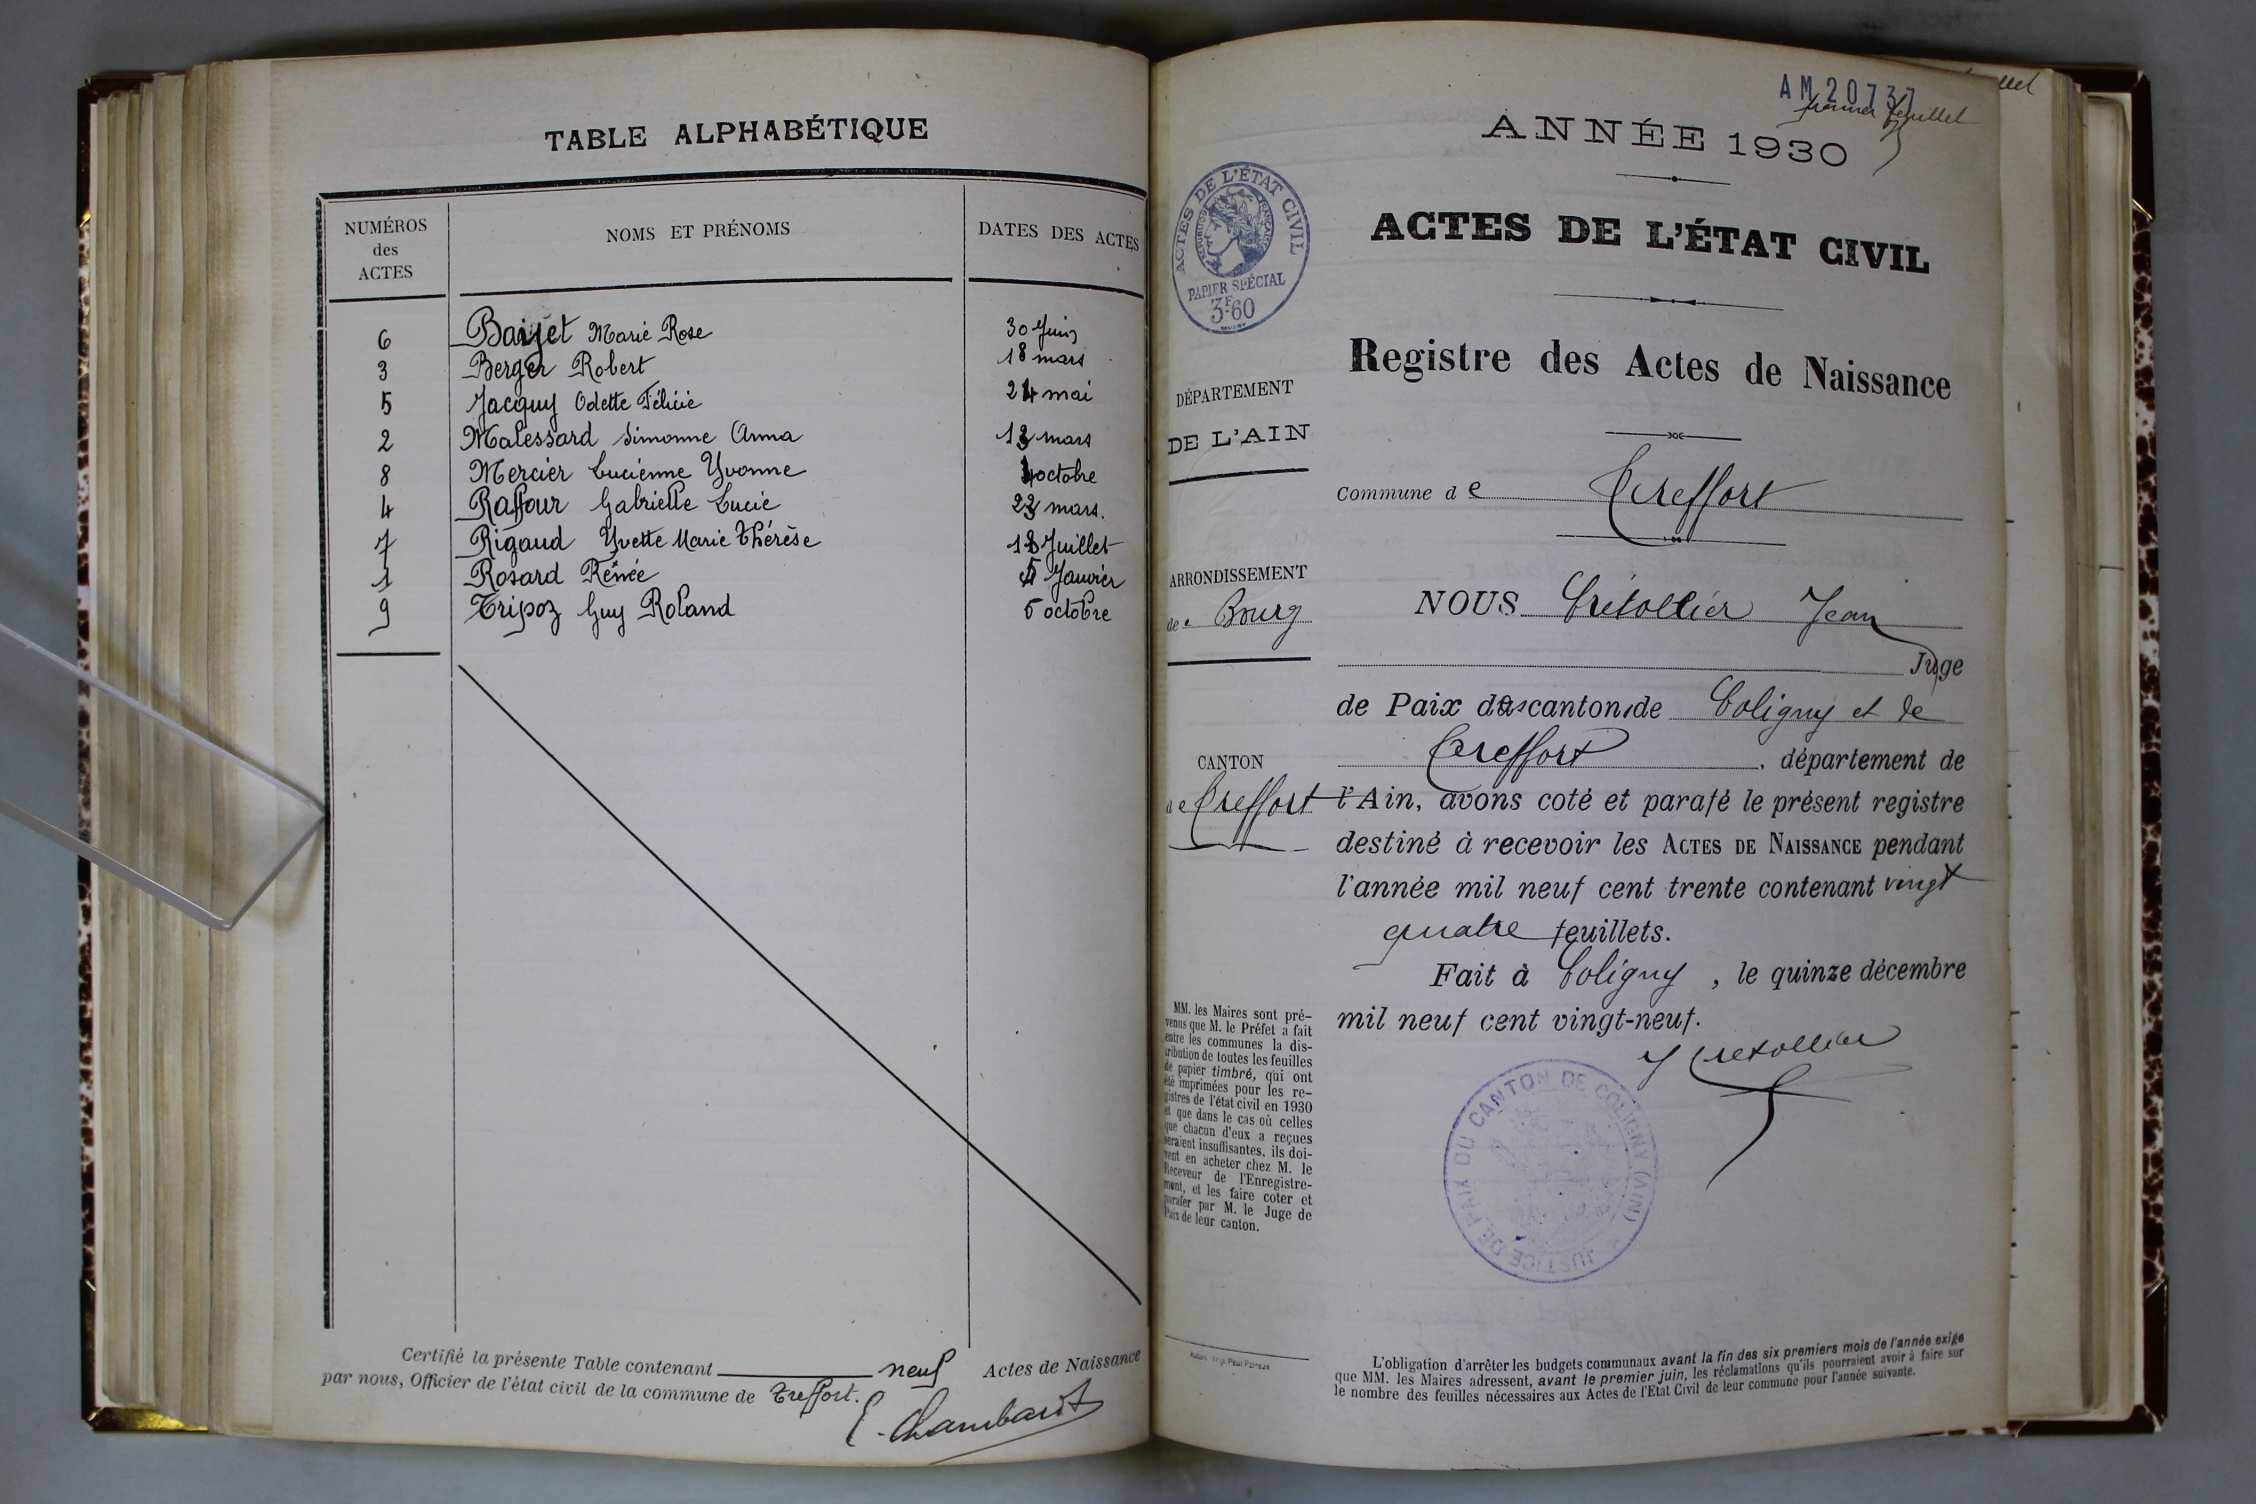 TABLE ALPHABÉTIQUE
NUMÉROS des ACTES NOMS ET PRÉNOMS DATES DES ACTES
6 Baijet Marie Rose 30 Juin
3 Berger Robert 18 mars
5 Jacquy Odette Félicie 24 mai
2 Malessard Simonne Anna 13 mars
8 Mercier Lucienne Yvonne 4 octobre
4 Raffour Gabrielle Lucie 23 mars.
7 Rigaud Yvette Marie Thérèse 18 Juillet
1 Rosard Renée Janvier
9 Tripoz Guy Roland 6 octobre
Certifié la présente Table contenant neuf Actes de Naissance
par nous, Officier de l'état civil de la commune de Treffort.
E. Chambard
AM20737
premier feuillet
ANNÉE 1930
ACTES DE L'ÉTAT CIVIL
RÉPUBLIQUE FRANÇAISE
PAPIER SPÉCIAL
3F60
ACTES DE L'ÉTAT CIVIL
Registre des Actes de Naissance
DÉPARTEMENT
DE L'AIN
Commune de Treffort
ARRONDISSEMENT
de Bourg
NOUS Crétollier Jean
Juge
de Paix des cantons de Coligny et de
Treffort, département de
CANTON
de Treffort
l'Ain, avons coté et parafé le présent registre
destiné à recevoir les ACTES DE NAISSANCE pendant
l'année mil neuf cent trente contenant vingt
quatre feuillets.
Fait à Coligny, le quinze décembre
mil neuf cent vingt-neuf.
J Cretollier
JUSTICE DE PAIX DU CANTON DE COLIGNY (AIN)
MM. les Maires sont pré-
venus que M. le Préfet a fait
entre les communes la dis-
tribution de toutes les feuilles
de papier timbré, qui ont
été imprimées pour les re-
gistres de l'état civil en 1930
et que dans le cas où celles
que chacun d'eux a reçues
seraient insuffisantes, ils doi-
vent en acheter chez M. le
Receveur de l'Enregistre-
ment, et les faire coter et
parafer par M. le Juge de
Paix de leur canton.
L'obligation d'arrêter les budgets communaux avant la fin des six premiers mois de l'année exige
que MM. les Maires adressent, avant le premier juin, les réclamations qu'ils pourraient avoir à faire sur
le nombre des feuilles nécessaires aux Actes de l'Etat Civil de leur commune pour l'année suivante.